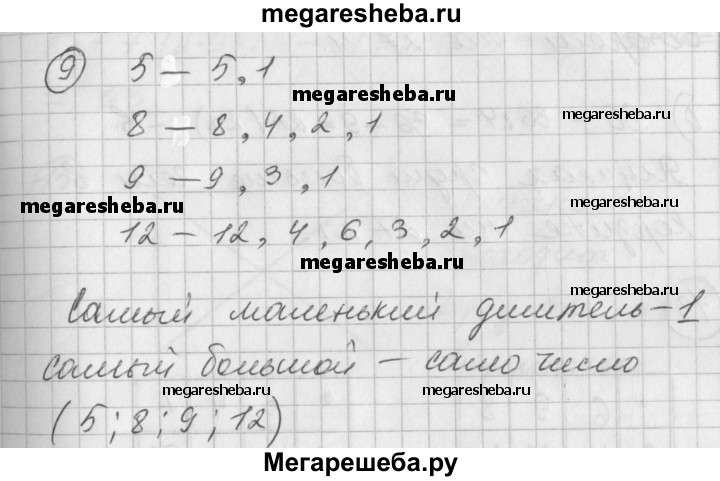 megaresheba.ru
9 5 – 5, 1
megaresheba.ru
megaresheba.ru
8 – 8, 4, 2, 1
9 – 9, 3, 1
megaresheba.ru
megaresheba.ru
12 – 12, 4, 6, 3, 2, 1
megaresheba.ru
megaresheba.ru
Самый маленький делитель – 1
самый большой – само число
megaresheba.ru
megaresheba.ru
(5; 8; 9; 12)
Мегарешеба.ру